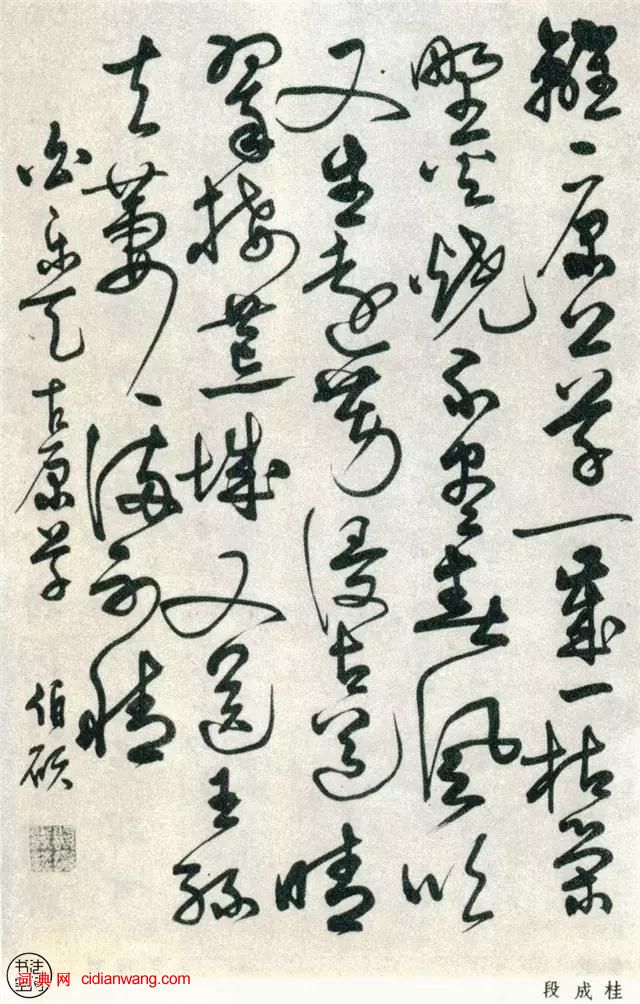 離〻原上草一歲一枯榮
野火燒不盡春風吹
又生遠芳侵古道晴
翠接荒城又送王孫
去萋〻滿別情
白樂天古原草 伯碩
段成桂
词典网 cidianwang.com